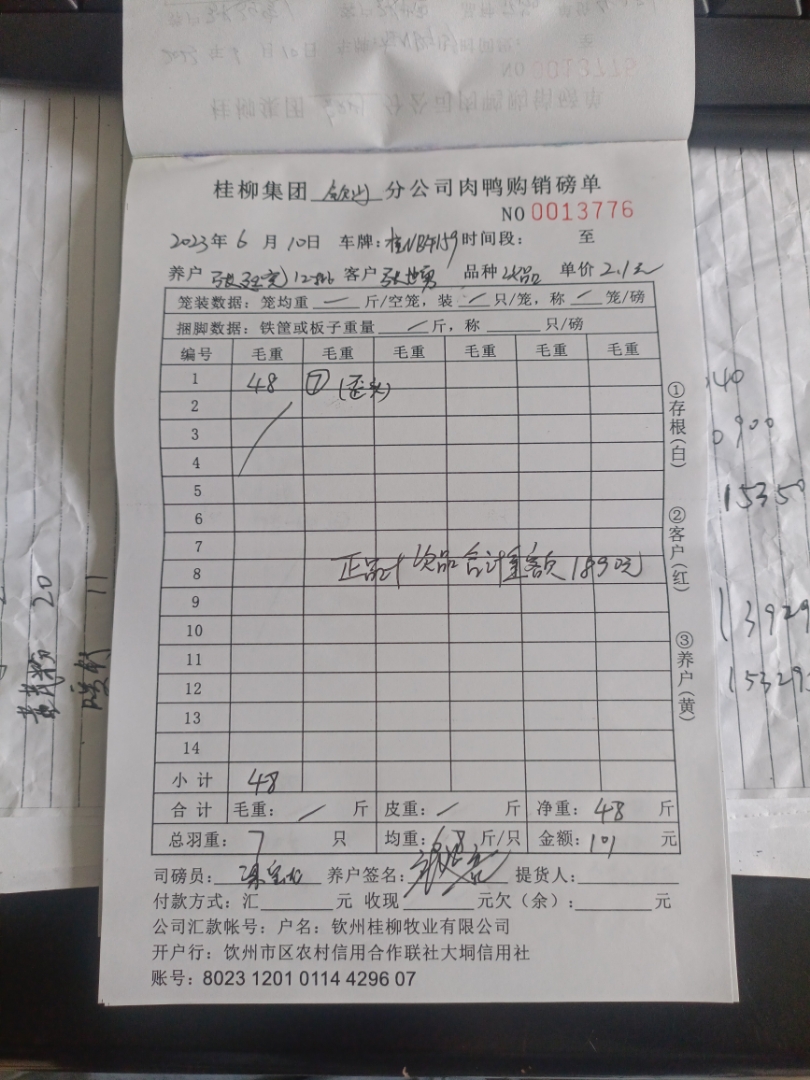 桂柳集团 钦州 分公司肉鸭购销磅单
NO 0013776
2023年 6 月 10日 车牌: 时间段: 至
养户 12批 客户 张世勇 品种 次品 单价 2.1元
笼装数据: 笼均重 — 斤/空笼, 装 / 只/笼, 称 / 笼/磅
捆脚数据: 铁筐或板子重量 / 斤, 称 只/磅
编号 毛重 毛重 毛重 毛重 毛重 毛重
1 48 ⑦ (歪头)
2
3
4
5
6
7
8 正品+次品合计金额 1890元
9
10
11
12
13
14
小计 48
合计 毛重: / 斤 皮重: / 斤 净重: 48 斤
总羽重: 7 只 均重: 斤/只 金额: 101 元
司磅员: 养户签名: 提货人:
付款方式: 汇 元 收现 元欠(余): 元
公司汇款帐号: 户名: 钦州桂柳牧业有限公司
开户行: 饮州市区农村信用合作联社大垌信用社
账号: 8023 1201 0114 4296 07
①存根(白)
②客户(红)
③养户(黄)
40
0900
1535
13929
15329
20
11